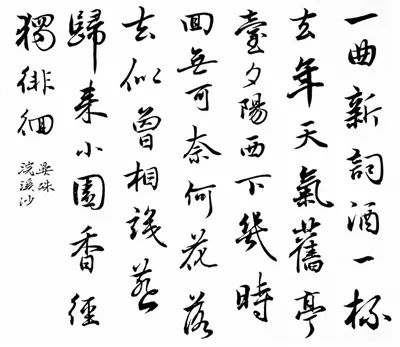 一曲新詞酒一杯
去年天氣舊亭
臺夕陽西下幾時
回無可奈何花落
去似曾相識燕
歸来小園香徑
獨徘徊
晏殊
浣溪沙